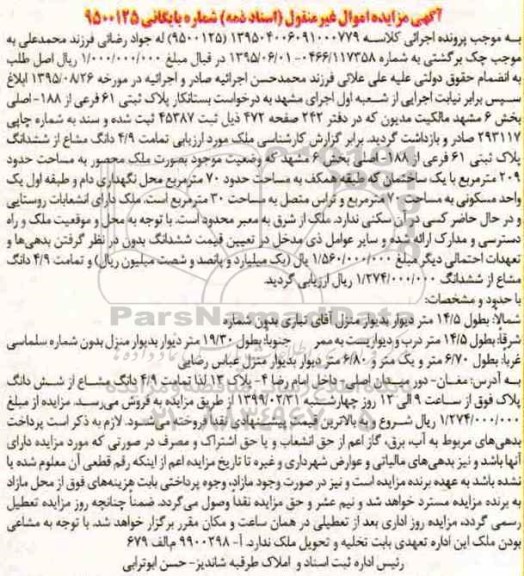 آگهی مزایده اموال غیر منقول (اسناد ذمه) شماره بایگانی ۹۵۰۰۱۲۵
به موجب پرونده اجرائی کلاسه ۱۳۹۵۰۴۰۰۶۰۹۱۰۰۰۷۷۹ (۹۵۰۰۱۲۵) له جواد رضائی فرزند محمدعلی به
موجب چک برگشتی به شماره ۰۴۶۶/۱۱۷۳۵۸- ۱۳۹۵/۰۶/۰۱ در قبال مبلغ ۱/۰۰۰/۰۰۰/۰۰۰ ریال اصل طلب
به انضمام حقوق دولتی علیه علی علائی فرزند محمدحسن اجرائیه صادر و اجرائیه در مورخه ۱۳۹۵/۰۸/۲۶ ابلاغ
سپس برابر نیابت اجرایی از شعبه اول اجرای مشهد به درخواست بستانکار پلاک ثبتی ۶۱ فرعی از ۱۸۸- اصلی
بخش ۶ مشهد مالکیت مدیون که در دفتر ۲۴۲ صفحه ۴۷۲ ذیل ثبت ۴۵۳۸۷ ثبت شده و سند به شماره چاپی
۲۹۳۱۱۷ صادر و بازداشت گردید. برابر گزارش کارشناسی ملک مورد ارزیابی تمامت ۴/۹ دانگ مشاع از ششدانگ
پلاک ثبتی ۶۱ فرعی از ۱۸۸- اصلی بخش ۶ مشهد که وضعیت موجود بصورت ملک محصور به مساحت حدود
۲۰۹ مترمربع با یک ساختمان که طبقه همکف به مساحت حدود ۷۰ مترمربع محل نگهداری دام و طبقه اول یک
واحد مسکونی به مساحت ۷۰ مترمربع و تراس متصل به مساحت ۳۰ مترمربع است. ملک دارای انشعابات روستایی
و در حال حاضر کسی در آن سکنی ندارد. ملک از شرق به معبر محدود است. با توجه به محل و موقعیت ملک و راه
دسترسی و مدارک ارائه شده و سایر عوامل ذی مدخل در تعیین قیمت ششدانگ بدون در نظر گرفتن بدهی‌ها و
تعهدات احتمالی دیگر مبلغ ۱/۵۶۰/۰۰۰/۰۰۰ ریال (یک میلیارد و پانصد و شصت میلیون ریال) و تمامت ۴/۹ دانگ
مشاع از ششدانگ ۱/۲۷۴/۰۰۰/۰۰۰ ریال ارزیابی گردید.
با حدود و مشخصات:
شمالاً: بطول ۱۴/۵ متر دیوار بدیوار منزل آقای نیازی بدون شماره
شرقاً: بطول ۱۴/۵ متر درب و دیواریست به ممر جنوباً: بطول ۱۹/۳۰ متر دیوار بدیوار منزل بدون شماره سلماسی
غرباً: بطول ۶/۷۰ متر و یک متر و ۶/۸۰ متر دیوار بدیوار منزل عباس رضایی
به آدرس: مغان- دور میدان اصلی- داخل امام رضا ۴- پلاک ۱۳ لذا تمامت ۴/۹ دانگ مشاع از شش دانگ
پلاک فوق از ساعت ۹ الی ۱۲ روز چهارشنبه ۱۳۹۹/۰۲/۳۱ از طریق مزایده به فروش می‌رسد. مزایده از مبلغ
۱/۲۷۴/۰۰۰/۰۰۰ ریال شروع و به بالاترین قیمت پیشنهادی نقدا فروخته می‌شود. لازم به ذکر است پرداخت
بدهی‌های مربوط به آب، برق، گاز اعم از حق انشعاب و یا حق اشتراک و مصرف در صورتی که مورد مزایده دارای
آنها باشد و نیز بدهی‌های مالیاتی و عوارض شهرداری و غیره تا تاریخ مزایده اعم از اینکه رقم قطعی آن معلوم شده یا
نشده باشد به عهده برنده مزایده است و نیز در صورت وجود مازاد، وجوه پرداختی بابت هزینه‌های فوق از محل مازاد
به برنده مزایده مسترد خواهد شد و نیم عشر و حق مزایده نقدا وصول می‌گردد. ضمناً چنانچه روز مزایده تعطیل
رسمی گردد، مزایده روز اداری بعد از تعطیلی در همان ساعت و مکان مقرر برگزار خواهد شد. با توجه به مشاعی
بودن ملک این اداره تعهدی بابت تخلیه و تحویل ملک ندارد. آ- ۹۹۰۰۲۹۸ م.الف ۶۷۹
رئیس اداره ثبت اسناد و املاک طرقبه شاندیز- حسن ابوترابی
ParsNamadData